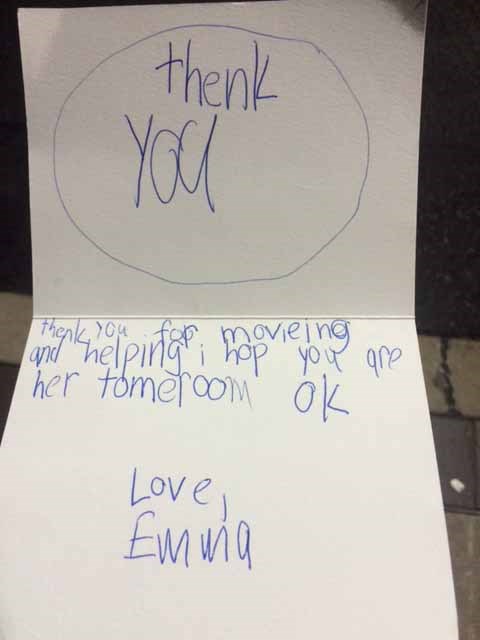 thenk
you
thenk you for movieing
and helping i hop you are
her tomeroom ok
Love,
Emma